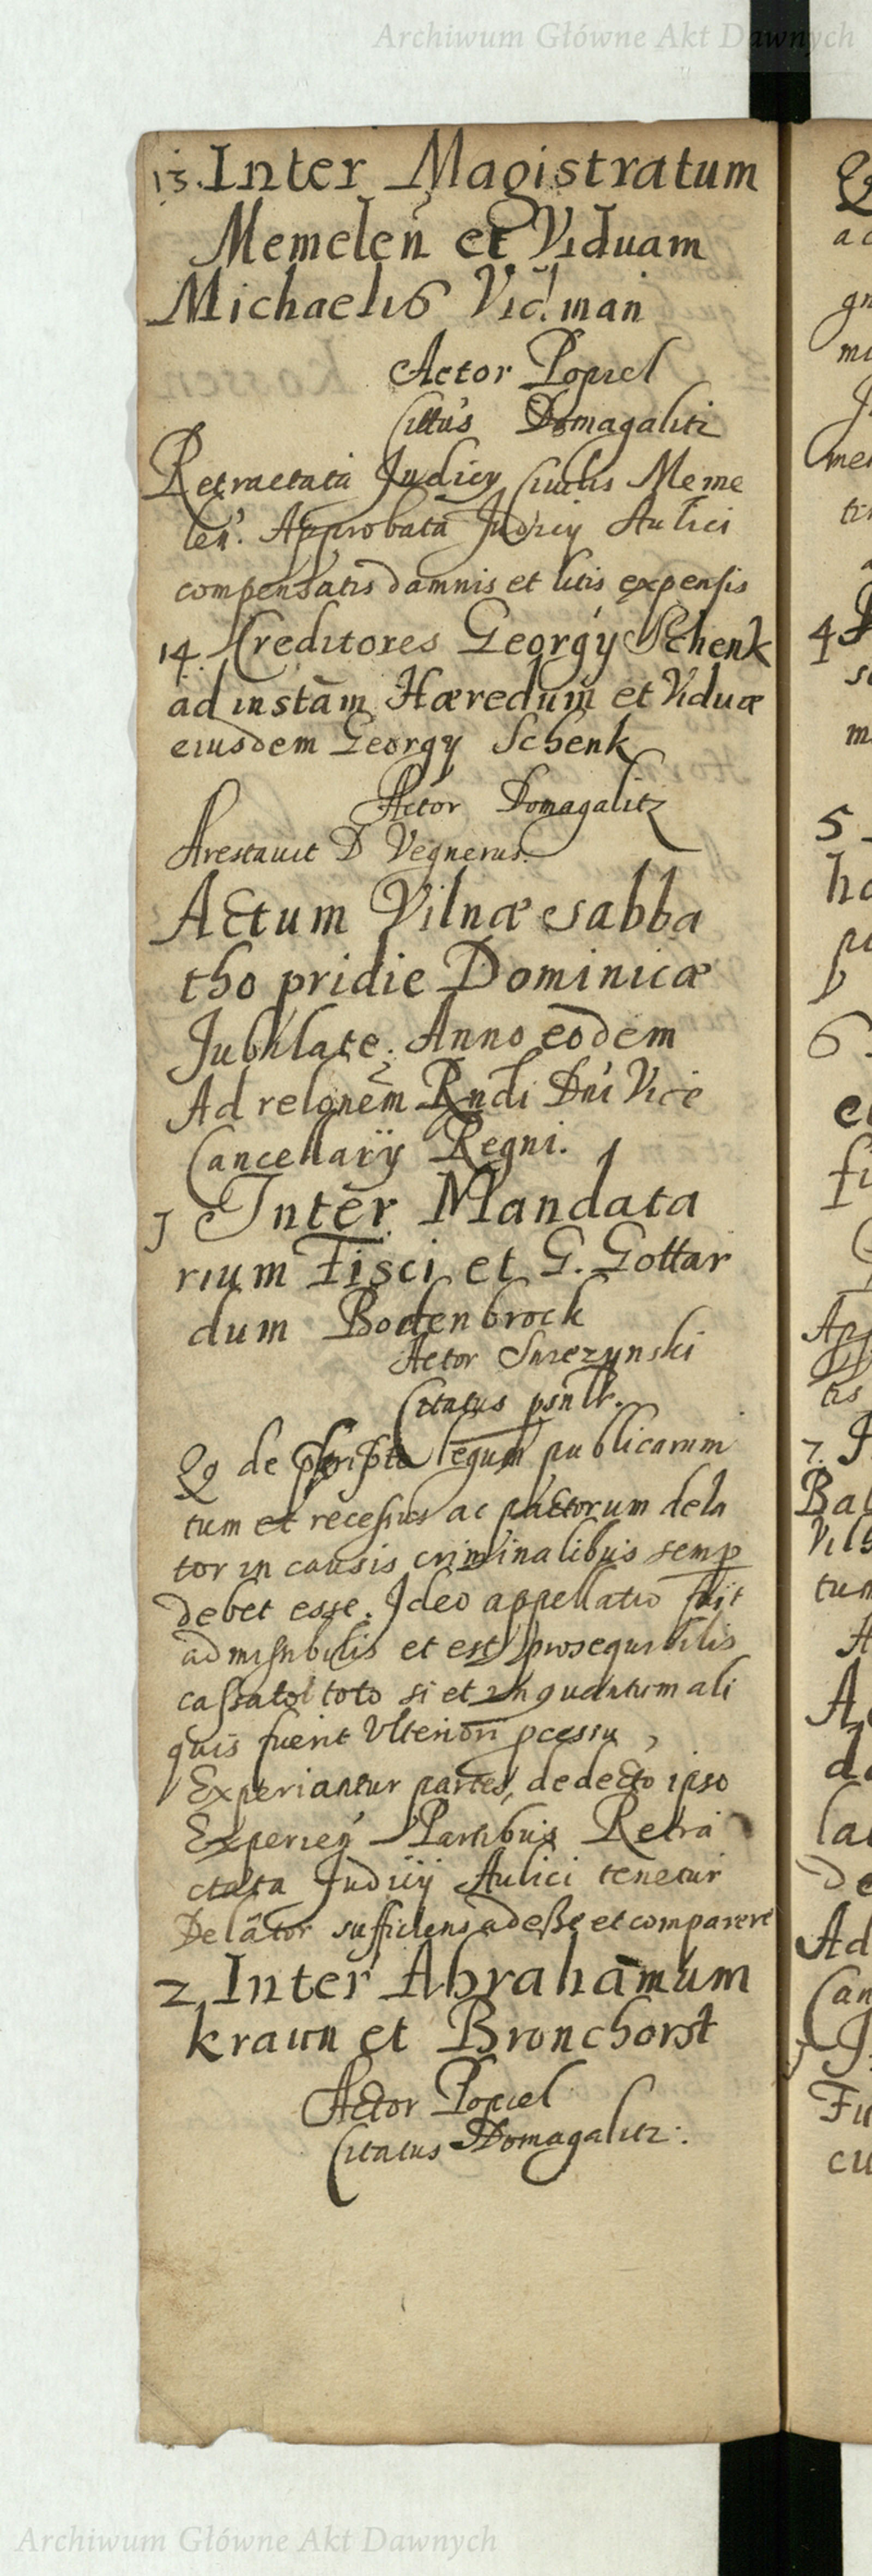 Archiwum Główne Akt Dawnych
13. Inter Magistratum
Memelen̄ et Viduam
Michaelis Vidman
Actor Popiel
Citt'us Domagalitz
Retractata Judicy Civilis Meme
len̄. Approbata Judicij Aulici
compensatis damnis et litis expensis
14. Creditores Georgy Schenk
ad instām Hæredum et Viduæ
eiusdem Georgy Schenk
Actor Domagalitz
Arestavit D Vegnerus.
Actum Vilnæ sabba
tho pridie Dominicæ
Jubilate. Anno eodem
Ad relonēm Rndi Dni Vice
Cancellarÿ Regni.
1 Inter Mandata
rium Fisci et G. Gottar
dum Bodenbrock
Actor Smezynski
Citatus psnlr.
Q de legum publicarum
tum et recessus ac pactorum dela
tor in causis criminalibus semp
debet esse. Ideo appellatio fuit
admissibilis et est prosequibilis
cassato toto si et in quantum ali
quis fuerit Ulteriori pcessu,
Experiantur partes, de decto ipso
Partibus Retra
ctata Judicij Aulici tenetur
Delator sufficiens adesse et comparere
2 Inter Abrahamum
kraun et Bronchorst
Actor Popiel
Citatus Domagalitz.
Archiwum Główne Akt Dawnych